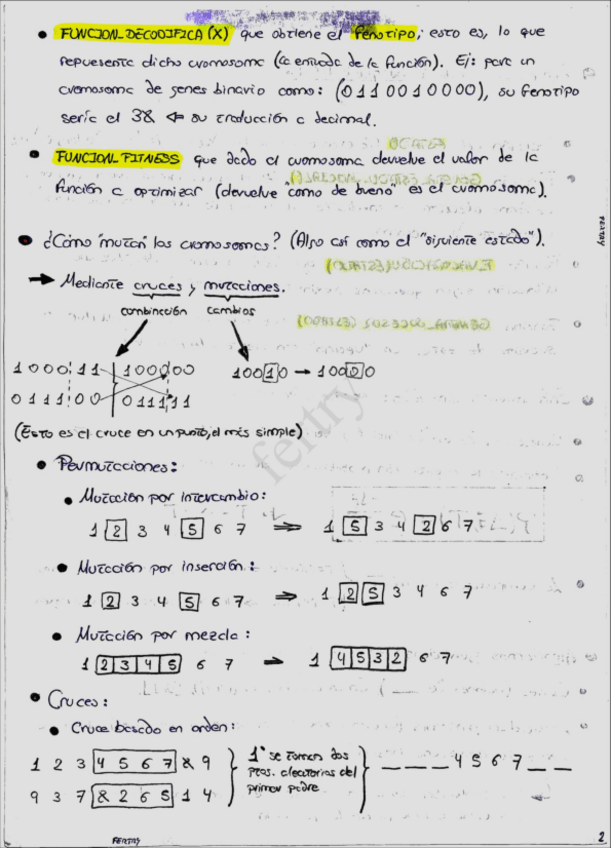 • FUNCION_DECODIFICA (X) que obtiene el fenotipo; esto es, lo que
representa dicho cromosoma (la entrada de la función). Ej: para un
cromosoma de genes binario como: (0110010000), su fenotipo
sería el 38 ⇐ su traducción a decimal.
• FUNCION_FITNESS que dado el cromosoma devuelve el valor de la
función a optimizar (devuelve "como de bueno" es el cromosoma).
• ¿Cómo "mutan" los cromosomas? (Algo así como el "siguiente estado").
→ Mediante cruces y mutaciones.
combinación cambios
100011 100000 10010 → 10000
011100 011111
(Esto es el cruce en un punto, el más simple)
• Permutaciones:
• Mutación por intercambio:
1 2 3 4 5 6 7 ⇒ 1 5 3 4 2 6 7
• Mutación por inserción:
1 2 3 4 5 6 7 ⇒ 1 2 5 3 4 6 7
• Mutación por mezcla:
1 2 3 4 5 6 7 → 1 4 5 3 2 6 7
• Cruces:
• Cruce basado en orden:
1 2 3 4 5 6 7 8 9
9 3 7 8 2 6 5 1 4
1º se toman dos
pos. aleatorias del
primer padre
_ _ _ 4 5 6 7 _ _
FERTRY
2
FERTRY
fertry